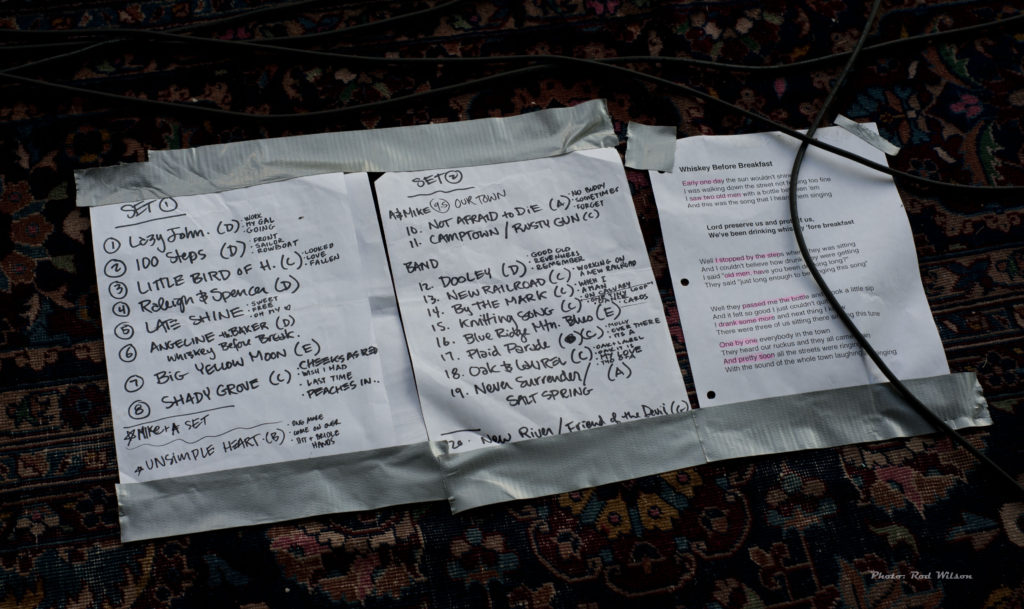 SET ①
① Lazy John. (D) • WORK • MY GAL • GOING
② 100 Steps (D) • FRONT • SAILOR • ROWBOAT
③ LITTLE BIRD OF H. (C) • LOOKED • LOVE • FALLEN
④ Raleigh & Spencer (D)
⑤ LATE SHINE • SWEET • FREE • OH MY
⑥ ANGELINE the BAKER (D)
Whiskey Before Break.
⑦ BIG YELLOW MOON (E)
⑧ SHADY GROVE (C) • CHEEKS AS RED • WISH I HAD • LAST TIME • PEACHES IN..
☆ Mike + A SET
* UNSIMPLE HEART (B) • COME ON OVER • BIT + BRIDLE • HANDS
SET ②
A & MIKE 9.5 OUR TOWN
10. NOT AFRAID to DIE (A) • NO BUDDY • SOMETIMES • FORGET
11. CAMPTOWN / RUSTY GUN (C)
BAND
12. DOOLEY (D) • GOOD OLD • REVENUERS • REMEMBER
13. NEW RAILROAD (C) • WORKING ON A NEW RAILROAD
14. By THE MARK (C) • WHEN I
15. Knitting Song (C)
16. Blue Ridge Mtn. Blues (E)
17. Plaid Parade (C) • MOLLY • OVER THERE • ITS A
18. Oak & LAUREL (C)
19. Never Surrender / (A)
SALT SPRING
20. New River / Friend of the Devil (C)
Whiskey Before Breakfast
Early one day the sun wouldn't shine
I was walking down the street not feeling too fine
I saw two old men with a bottle between 'em
And this was the song that I heard them singing
Lord preserve us and protect us,
We've been drinking whiskey 'fore breakfast
Well I stopped by the steps where they was sitting
And I couldn't believe how drunk they were getting
I said "old men, have you been drinking long?"
They said "just long enough to be singing this song"
Well they passed me the bottle and I took a little sip
And it felt so good I just couldn't quit
I drank some more and next thing I knew
There were three of us sitting there singing this tune
One by one everybody in the town
They heard our ruckus and they all came down
And pretty soon all the streets were ringing
With the sound of the whole town laughing and singing
Photo: Rod Wilson